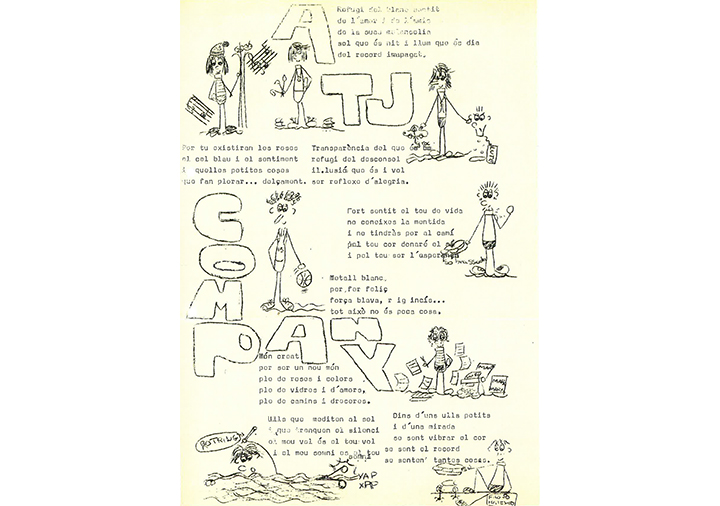 A
Refugi del blanc sentit
de l'amor i de l'odi
de la suau melancolia
sol que és nit i llum que és dia
del record inapagat.
TU
Per tu existiran les roses
el cel blau i el sentiment
i quelles petites coses
que fan plorar... dolçament.
Transparència del que és
refugi del desconsol
il.lusió que és i vol
ser reflexe d'alegria.
COMPANY
Fort sentit el teu de vida
no coneixes la mentida
i no tindràs por al camí
pel teu cor donaré el
i pel teu ser l'esperança
Metall blanc,
per fer feliç
força blava, r ig incís...
tot això no és poca cosa.
Món creat
per ser un nou món
ple de roses i colors
ple de vidres i d'amors,
ple de camins i dreceres.
Ulls que mediten al sol
i que trenquen el silenci
el meu vol és el teu vol
i el meu somni és el teu
somni
Dins d'uns ulls petits
i d'una mirada
se sent vibrar el cor
se sent el record
se senten tantes coses.
BOTRING